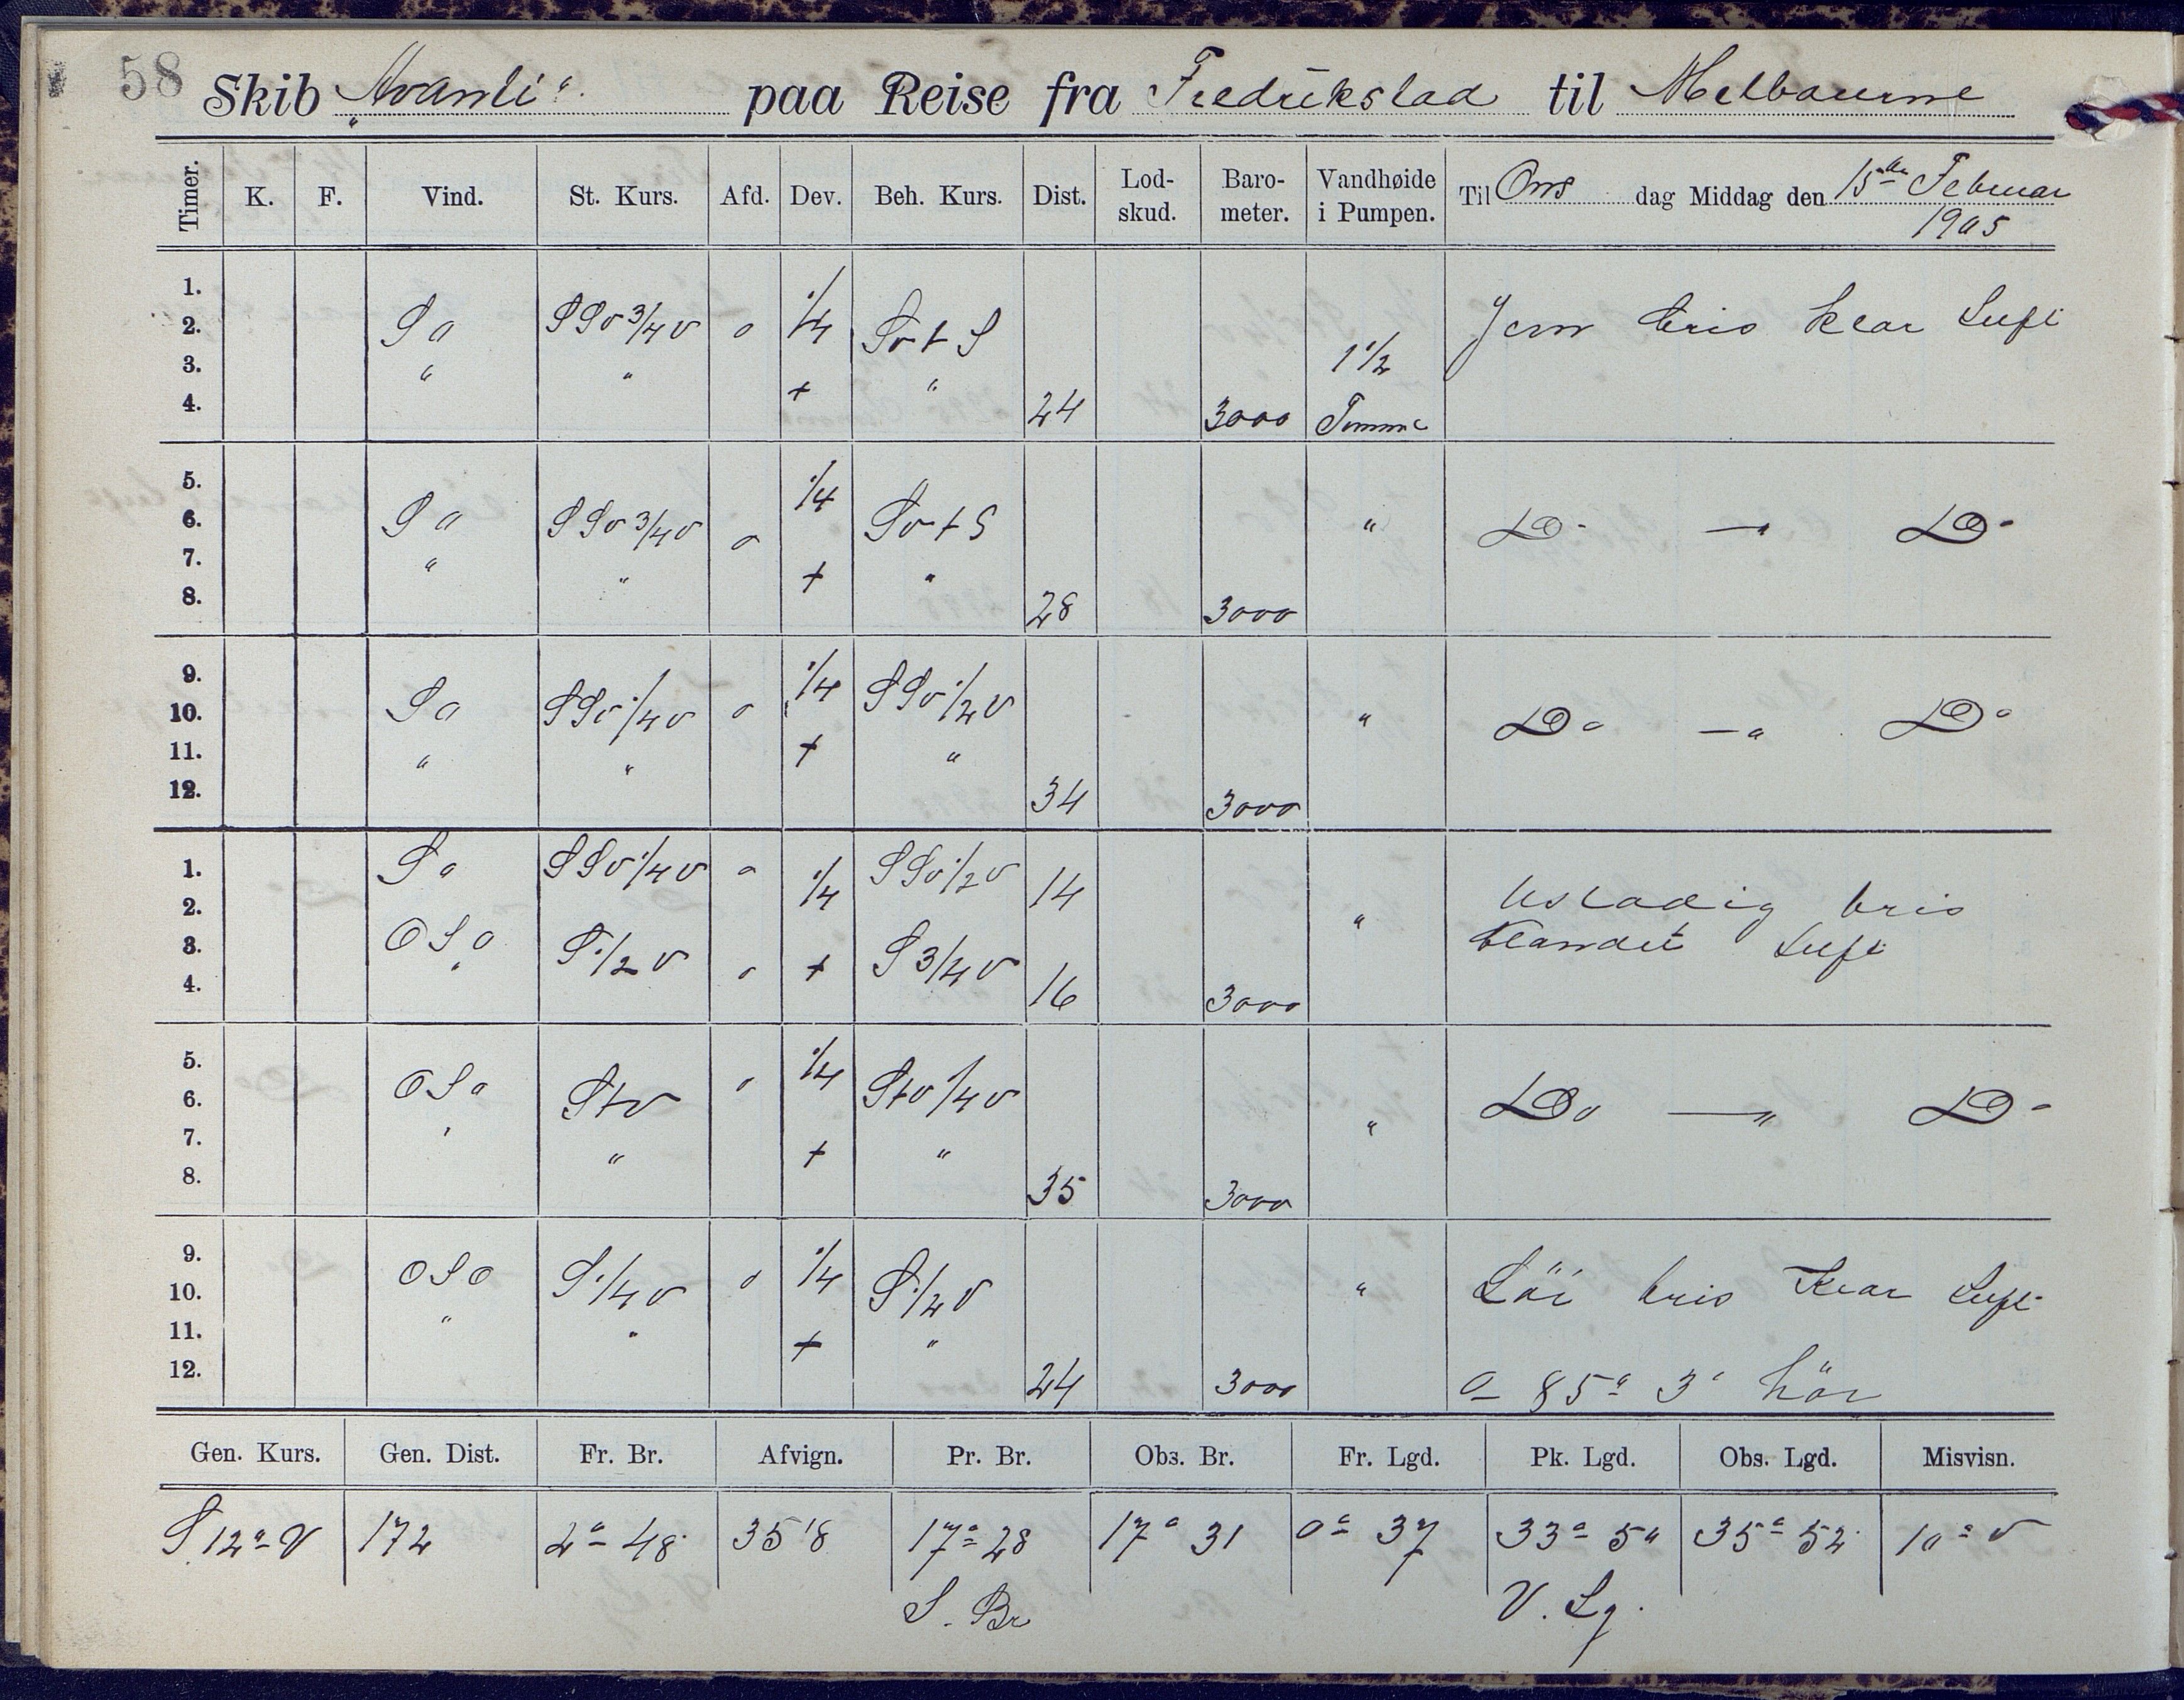 58
Skib „Avanti“ paa Reise fra Fredrikstad til Melbourne
Timer. K. F. Vind. St. Kurs. Afd. Dev. Beh. Kurs. Dist. Lod-skud. Baro-meter. Vandhøide i Pumpen. Til Ons dag Middag den 15de Februar 1905
1.
2. So SSv 3/4 v o 1/4 Sv t S Jevn bris klar Luft
3. " " + " 1 1/2
4. 24 3000 Tomme
5. 1/4
6. So SSv 3/4 v o Sv t S " Do —" Do
7. " " + "
8. 28 3000
9. 1/4
10. So SSv 1/4 v o SSv 1/2 v " Do —" Do
11. " " + "
12. 34 3000
1. So SSv 1/4 v o 1/4 SSv 1/2 v 14
2. " Ustadig bris
3. OSo S 1/2 v o + S 3/4 v blandet Luft
4. " 16 3000
5. 1/4
6. OSo Stv o Stv 1/4 v " Do —" Do
7. " " + "
8. 35 3000
9. 1/4
10. OSO S 1/4 v o S 1/2 v " Löi bris Klar Luft
11. " " + "
12. 24 3000 O 85° 3' hör
Gen. Kurs. Gen. Dist. Fr. Br. Afvign. Pr. Br. Obs. Br. Fr. Lgd. Pk. Lgd. Obs. Lgd. Misvisn.
S 12° V 172 2° 48' 35'8 17° 28 17° 31 0° 37 33° 50 35° 52' 10° v
S. Br V. Lg.